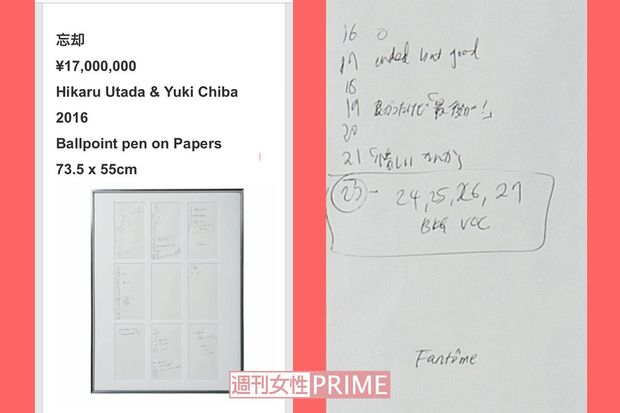 忘却
¥17,000,000
Hikaru Utada & Yuki Chiba
2016
Ballpoint pen on Papers
73.5 x 55cm
16 0
17 ended but good
18
19 良かったけど「最後か!」
20
21
23 - 24, 25, 26, 27
BKG VOC
Fantôme
週刊女性PRIME